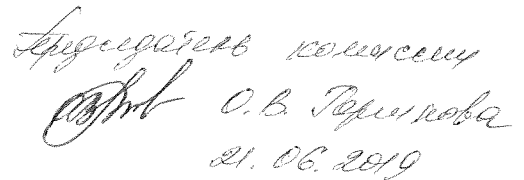 Председатель комиссии
О.В. Горшкова
21.06.2019